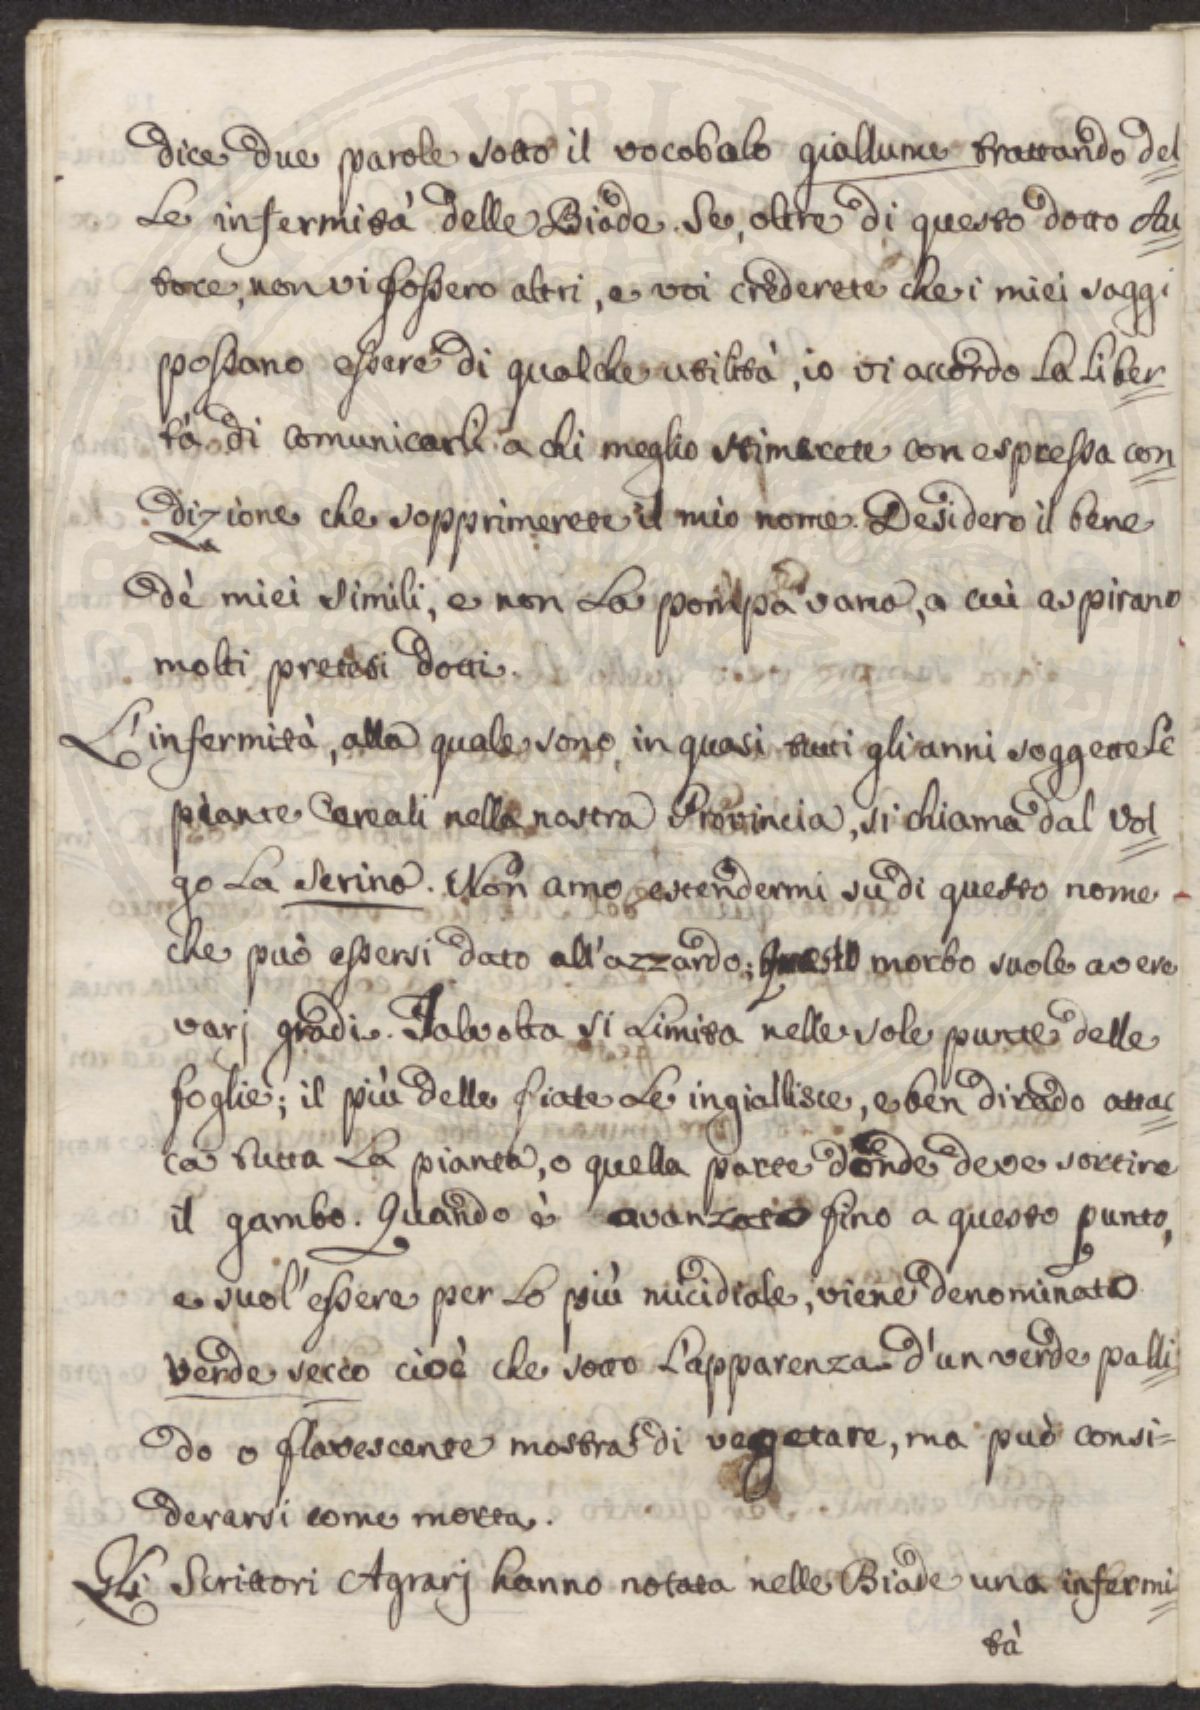 dice due parole sotto il vocobalo giallume trattando del=
le infermità delle Biade. Se, oltre di questo dotto Au=
tore, non vi fossero altri, e voi crederete che i miei saggi
possano essere di qualche utilità, io vi accordo la liber=
tà di comunicarli a chi meglio stimerete con espressa con=
dizione che sopprimerete il mio nome. Desidero il bene
dè miei simili, e non la pompa vana, a cui aspirano
molti pretesi dotti.
L'infermità, alla quale sono, in quasi tutti gli anni soggette le
piante Cereali nella nostra Provincia, si chiama dal vol=
go la Serina. Non amo estendermi su di questo nome
che può essersi dato all'azzardo; questo morbo suole avere
varj gradi. Talvolta si limita nelle sole punte delle
foglie; il più delle fiate le ingiallisce, e ben di rado attac=
ca tutta la pianta, o quella parte donde deve sortire
il gambo. Quando è avanzato fino a questo punto,
e suol'essere per lo più micidiale, viene denominato
verde secco cioè che sotto l'apparenza d'un verde palli=
do o flavescente mostra di vegetare, ma può consi=
derarsi come morta.
Gli Scrittori Agrarj hanno notata nelle Biade una infermi=
tà